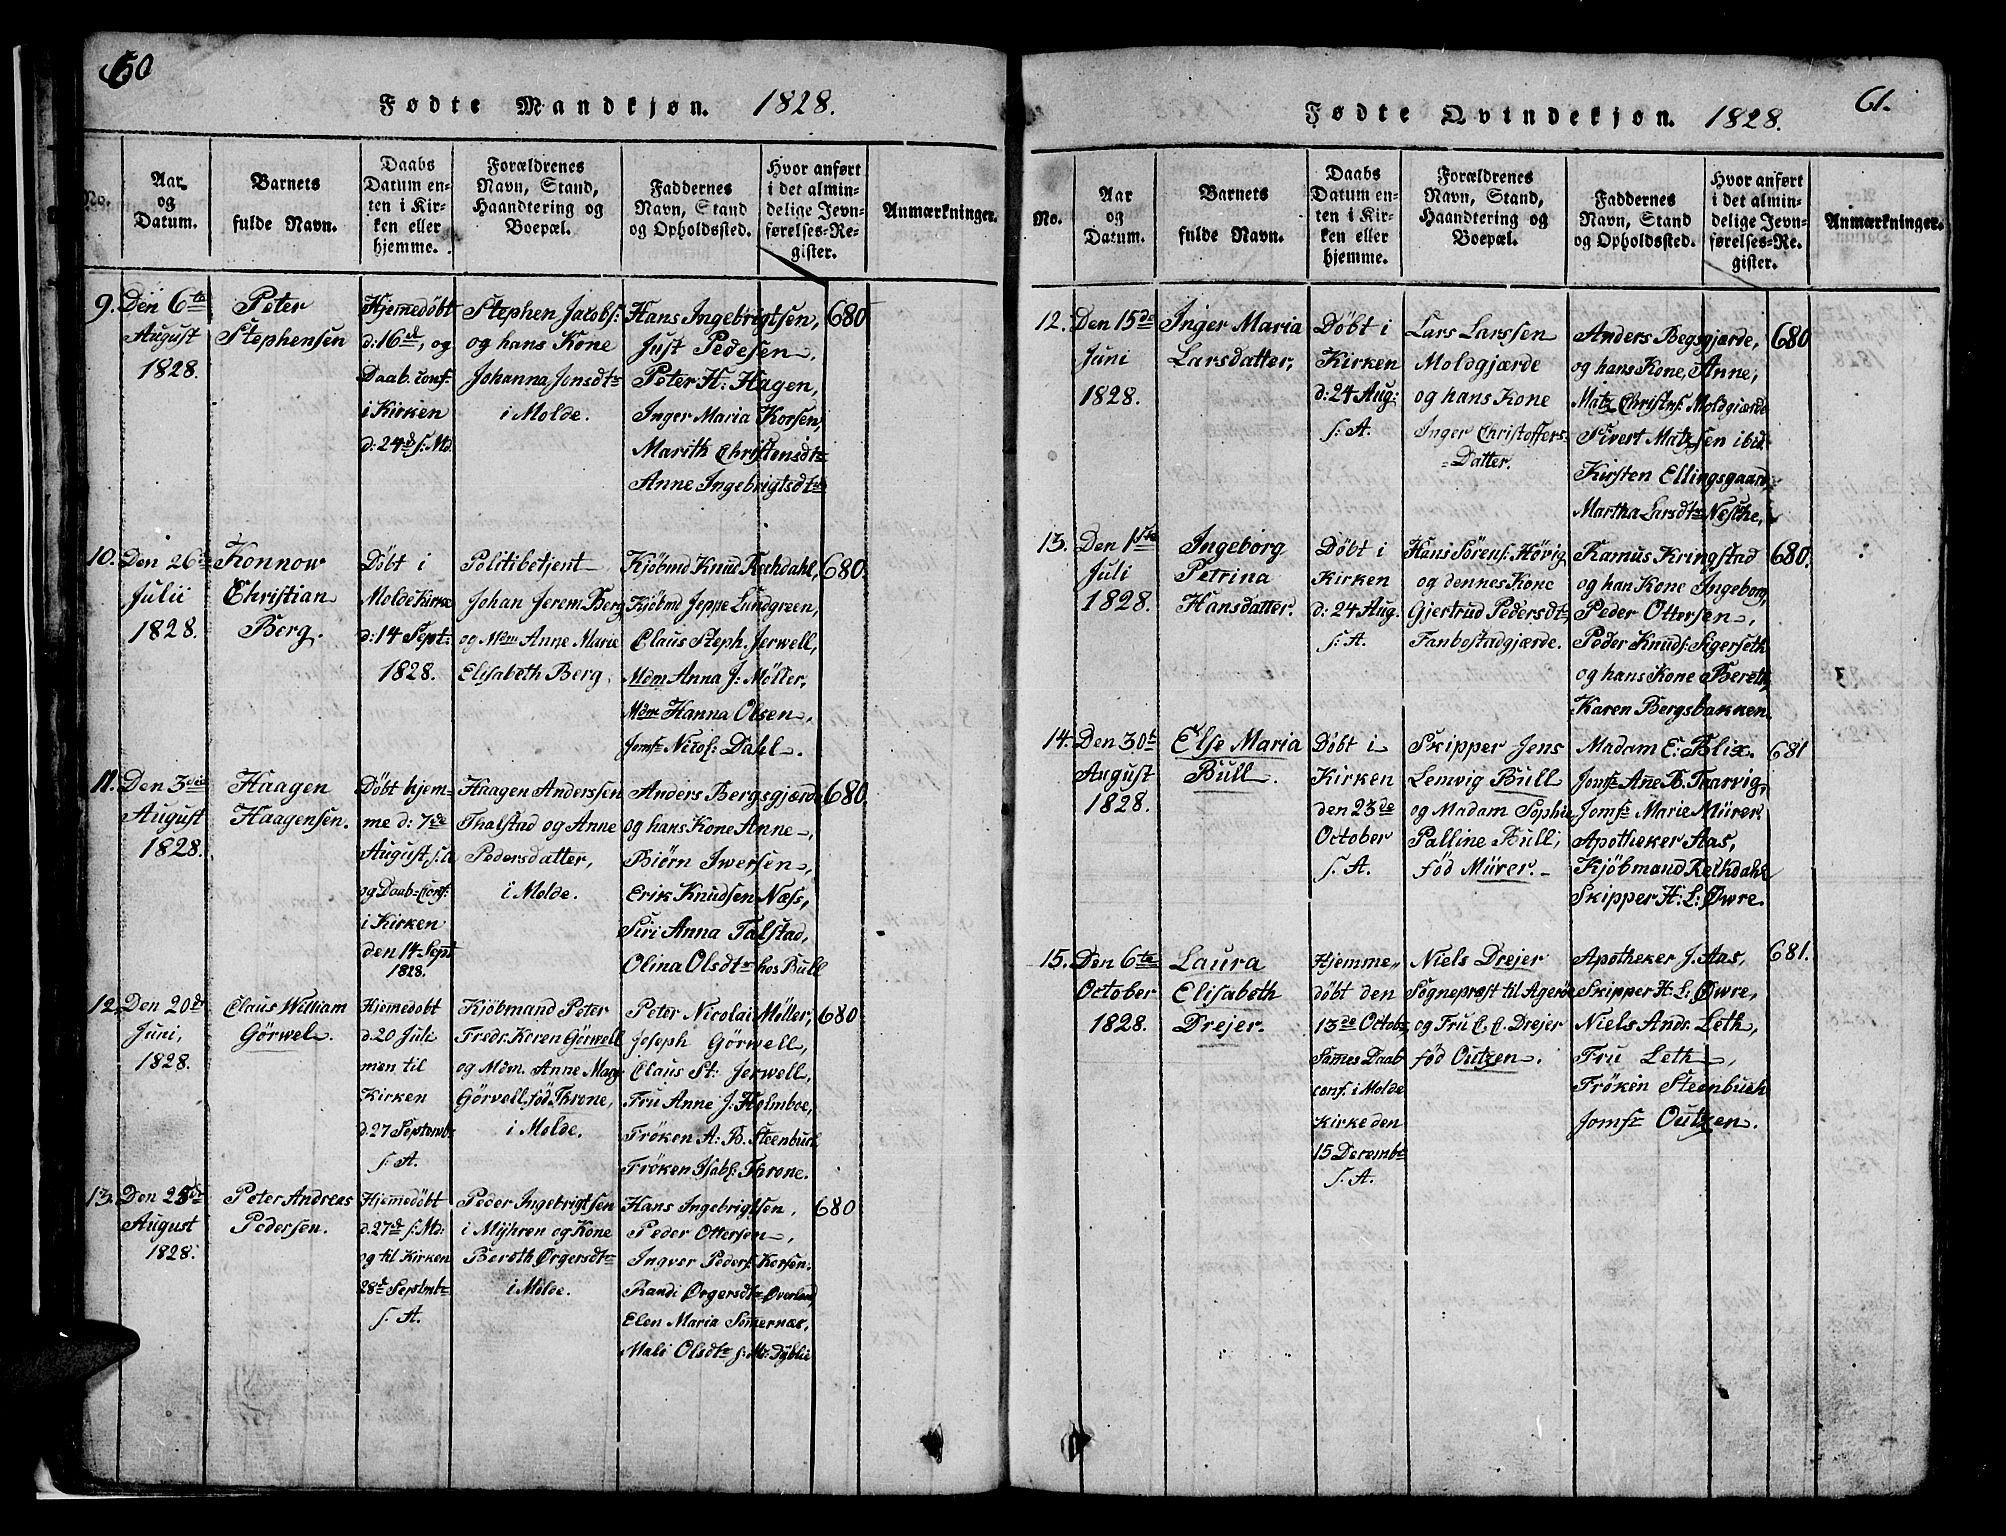 60
Fødte Mandkjøn. 1828.
No.
Aar og Datum.
Barnets fulde Navn.
Daabs Datum enten i Kirken eller hjemme.
Forældrenes Navn, Stand, Haandtering og Boepæl.
Faddernes Navn, Stand og Opholdssted.
Hvor anført i det almindelige Jevnførelses-Register.
Anmærkninger.
9.
Den 6te
August
1828.
Peter
Stephensen
Hjemedöbt
d: 16de, og
Daab. conf:
i Kirken
d: 24d s: Md.
Stephen Jacobs:
og hans Kone
Johanna Jonsdtr
i Molde.
Hans Ingebrigtsen,
Just Pedesen,
Peter H: Hagen,
Inger Maria Korsen,
Marith Christensdtr
Anne Ingebrigtsdtr
680
10.
Den 26de
Julii
1828.
Konnow
Christian
Berg.
Döbt i
Molde Kirke
d: 14 Sept:
1828.
Politibetjent
Johan Jerem Berg
og Mdm Anne Marie
Elisabeth Berg.
Kjöbmd Knud Rekdahl,
Kjöbmd Jeppe Lundgreen,
Claus Steph. Jerwell,
Mdm Anna J: Möller,
Mdm Hanna Olsen,
Jomfr Nicol: Dahl.
680.
11.
Den 3die
August
1828.
Haagen
Haagensen.
Döbt hjem-
me d: 7de
August s: A
og Daab-conf:
i Kirken
den 14 Sept
1828.
Haagen Anderssen
Thalstad og Anne
Pedersdatter,
i Molde.
Anders Bergsgjærde
og hans Kone Anne,
Biörn Iwersen,
Erik Knudsen Næss,
Siri Anna Talstad,
Olina Olsdtr hos Bull
680.
12.
Den 20de
Juni,
1828.
Claus William
Görwel.
Hjemedobt
d. 20 Juli
men til
Kirken
d. 27 Septembr
s. A.
Kjöbmand Peter
Fredr. Koren Görwell
og Mdm. Anne Marg
Görvell, föd Throne,
i Molde.
Peter Nicolai Möller,
Joseph Görwell,
Claus St: Jerwell,
Fru Anne J: Holmboe,
Fröken A: B. Steenbuch
Fröken Isab: Throne.
680
13.
Den 25de
August
1828.
Peter Andreas
Pedersen.
Hjemedöbt
d. 27de s. Md:
og til Kirken
28de Septmbr
s. A.
Peder Ingebrigtsen
i Mÿhren og Kone
Bereth Ørgersdtr
i Molde.
Hans Ingebrigtsen,
Peder Ottersen,
Ingver Peders: Korsen.
Randi Ørgersdtr Øverland
Elen Maria Somernæs,
Mali Olsdtr
680
61.
Fødte Qvindekjøn. 1828.
No.
Aar og Datum.
Barnets fulde Navn.
Daabs Datum enten i Kirken eller hjemme.
Forældrenes Navn, Stand, Haandtering og Boepæl.
Faddernes Navn, Stand og Opholdssted.
Hvor anført i det almindelige Jevnførelses-Re. gister.
Anmærkninger.
12.
Den 15de
Juni
1828.
Inger Maria
Larsdatter,
Döbt i
Kirken
d: 24 Aug:
s. A.
Lars Larssen
Moldgjærde
og hans Kone
Inger Christoffers-
Datter.
Anders Begsgjærde,
og hans Kone, Anne,
Matz Christns: Moldgiærde
Sivert Matzsen ibid:
Kirsten Ellingsgaard,
Martha Larsdtr Nesche,
680
13.
Den 1ste
Juli
1828.
Ingeborg
Petrina
Hansdatter.
Döbt i
Kirken
d: 24 Aug.
s. A.
Hans Sörens: Hövig
og dennes Kone
Gjertrud Pedersdtr
Fanbostadgjærde.
Rasmus Kringstad
og han Kone Ingeborg,
Peder Ottersen,
Peder Knuds: Sigerseth
og hans Kone Bereth,
Karen Bergsbakken.
680.
14.
Den 30te
August
1828.
Else Maria
Bull.
Döbt i
Kirken
den 23de
October
s. A.
Skipper Jens
Lemvig Bull
og Madam Sophie
Palline Bull,
föd Mürer.
Madam E: Blix.
Jomfr Ane B. Tharvig,
Jomfr Marie Mürer.
Apotheker Aas,
Kjöbmand Rekdahl
Skipper H: L: Øwre.
681
15.
Den 6te
October
1828.
Laura
Elisabeth
Drejer.
Hjemme-
döbt den
13de Octobr
Sames Daab
conf. i Molde
Kirke den
15 Decembr
s. A.
Niels Drejer
Sognepræst til Ageröe
og Fru C. C. Drejer
föd Outzen.
Apotheker J. Aas,
Skipper H. L: Øwre,
Niels Ands. Leth,
Fru Leth,
Fröken Steenbuch
Jomfr Outzen.
681.